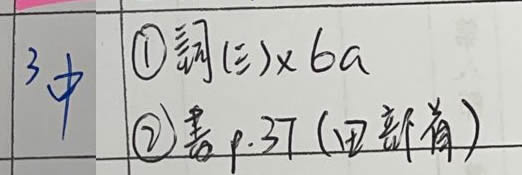 3 中
① 詞(三)x 6a
② 書 p.37 (田部首)